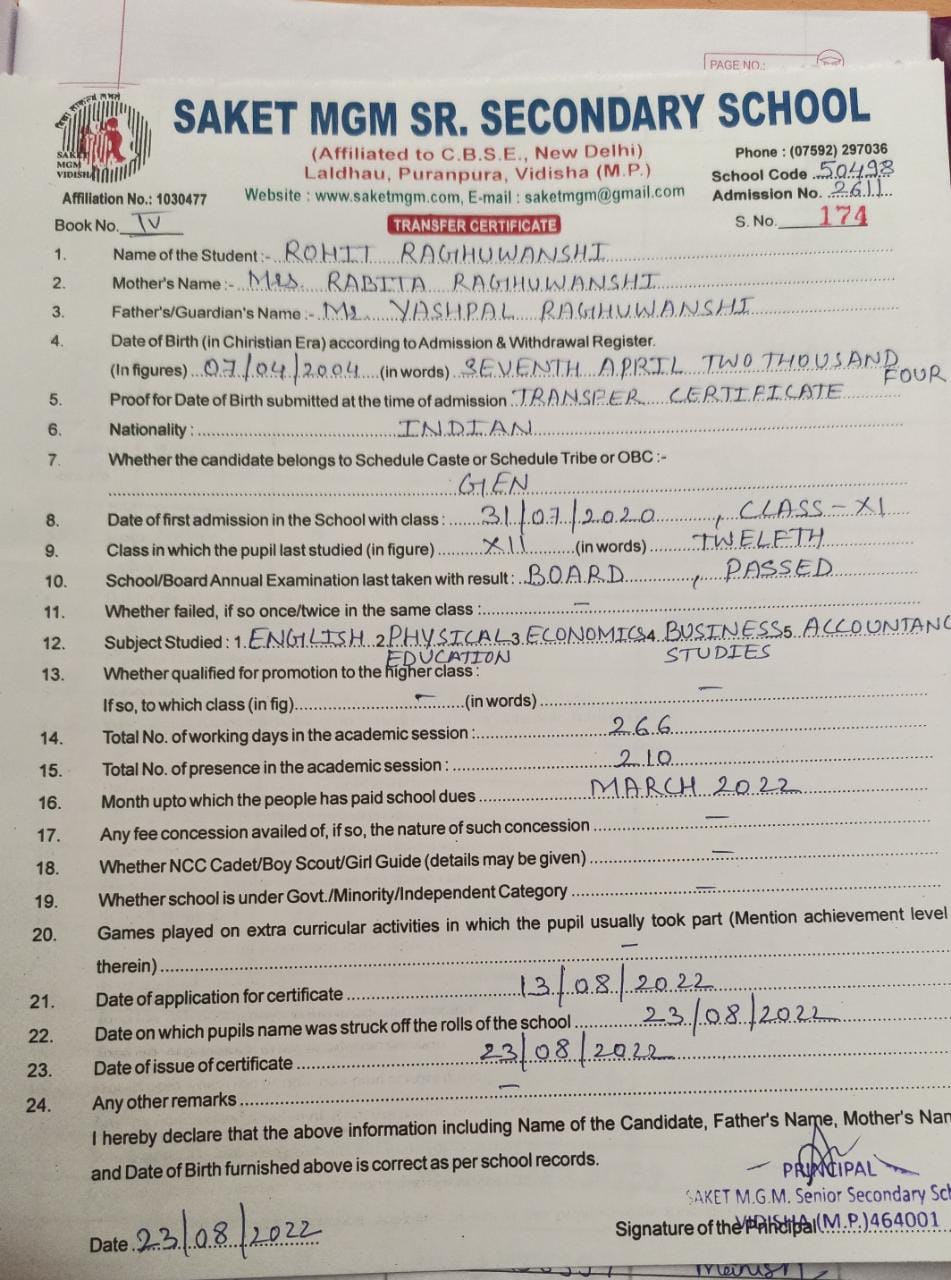 PAGE NO.:
SAKET MGM SR. SECONDARY SCHOOL
SAKET
MGM
VIDISHA
(Affiliated to C.B.S.E., New Delhi)
Laldhau, Puranpura, Vidisha (M.P.)
Website : www.saketmgm.com, E-mail : saketmgm@gmail.com
Phone : (07592) 297036
School Code 50498
Admission No. 2611
Affiliation No.: 1030477
Book No. IV
TRANSFER CERTIFICATE
S. No. 174
1. Name of the Student :- ROHIT RAGHUWANSHI
2. Mother's Name :- Mrs. RABITA RAGHUWANSHI
3. Father's/Guardian's Name :- Mr. YASHPAL RAGHUWANSHI
4. Date of Birth (in Chiristian Era) according to Admission & Withdrawal Register.
(In figures) 07/04/2004 (in words) SEVENTH APRIL TWO THOUSAND
FOUR
5. Proof for Date of Birth submitted at the time of admission TRANSFER CERTIFICATE
6. Nationality : INDIAN
7. Whether the candidate belongs to Schedule Caste or Schedule Tribe or OBC :-
GEN
8. Date of first admission in the School with class : 31/07/2020, CLASS-XI
9. Class in which the pupil last studied (in figure) XII (in words) TWELFTH
10. School/Board Annual Examination last taken with result : BOARD, PASSED
11. Whether failed, if so once/twice in the same class : —
12. Subject Studied : 1. ENGLISH 2. PHYSICAL 3. ECONOMICS 4. BUSINESS 5. ACCOUNTANC
EDUCATION STUDIES
13. Whether qualified for promotion to the higher class :
If so, to which class (in fig) — (in words) —
14. Total No. of working days in the academic session : 266
15. Total No. of presence in the academic session : 210
16. Month upto which the people has paid school dues MARCH 2022
17. Any fee concession availed of, if so, the nature of such concession —
18. Whether NCC Cadet/Boy Scout/Girl Guide (details may be given) —
19. Whether school is under Govt./Minority/Independent Category —
20. Games played on extra curricular activities in which the pupil usually took part (Mention achievement level
therein) —
21. Date of application for certificate 13/08/2022
22. Date on which pupils name was struck off the rolls of the school 23/08/2022
23. Date of issue of certificate 23/08/2022
24. Any other remarks —
I hereby declare that the above information including Name of the Candidate, Father's Name, Mother's Nam
and Date of Birth furnished above is correct as per school records.
PRINCIPAL
SAKET M.G.M. Senior Secondary Sch
VIDISHA (M.P.) 464001
Signature of the Principal
Date 23/08/2022